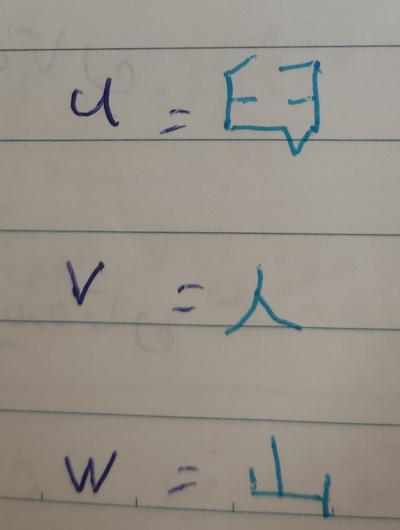 u =
v = 人
w =